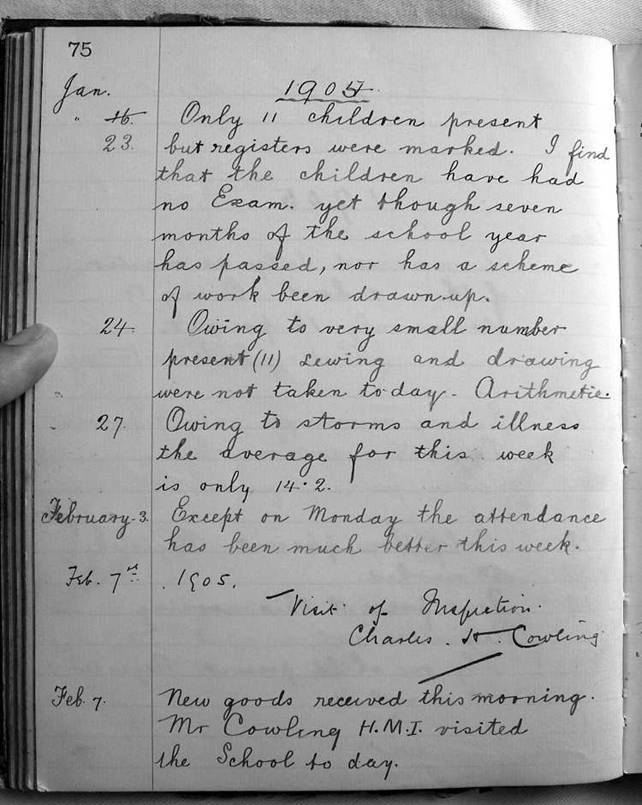 75
Jan. 1905
" 16. Only 11 children present
23. but registers were marked. I find
that the children have had
no Exam. yet though seven
months of the school year
has passed, nor has a scheme
of work been drawn up.
24. Owing to very small number
present (11) sewing and drawing
were not taken to day. Arithmetic.
" 27. Owing to storms and illness
the average for this week
is only 14.2.
February 3. Except on Monday the attendance
has been much better this week.
Feb. 7th 1905.
Visit of Inspection.
Charles. H. Cowling
Feb. 7. New goods received this morning.
Mr Cowling H.M.I. visited
the School to day.